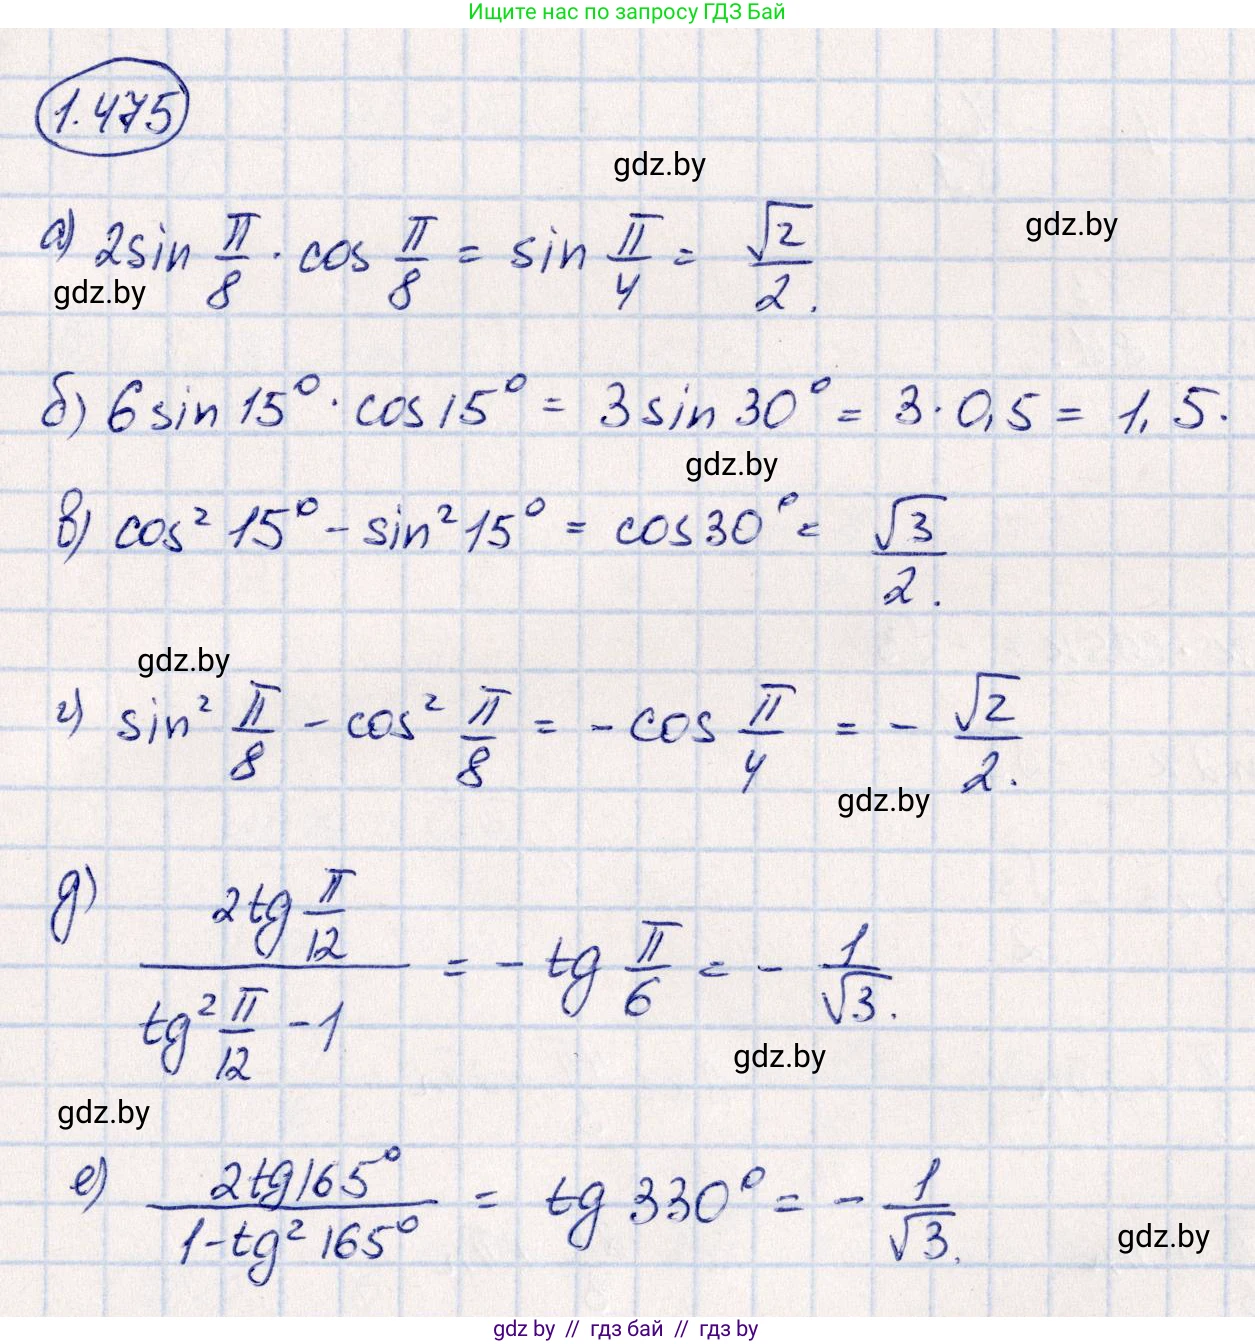 Ищите нас по запросу ГДЗ Бай
1.475
gdz.by
gdz.by
а) 2sin π/8 · cos π/8 = sin π/4 = √2/2.
gdz.by
б) 6 sin 15° · cos 15° = 3 sin 30° = 3 · 0,5 = 1,5.
gdz.by
в) cos² 15° - sin² 15° = cos 30° = √3/2.
gdz.by
г) sin² π/8 - cos² π/8 = - cos π/4 = - √2/2.
gdz.by
д) 2tg π/12 / (tg² π/12 - 1) = - tg π/6 = - 1/√3.
gdz.by
gdz.by
е) 2tg 165° / (1 - tg² 165°) = tg 330° = - 1/√3.
gdz.by
gdz by // гдз бай // гдз by